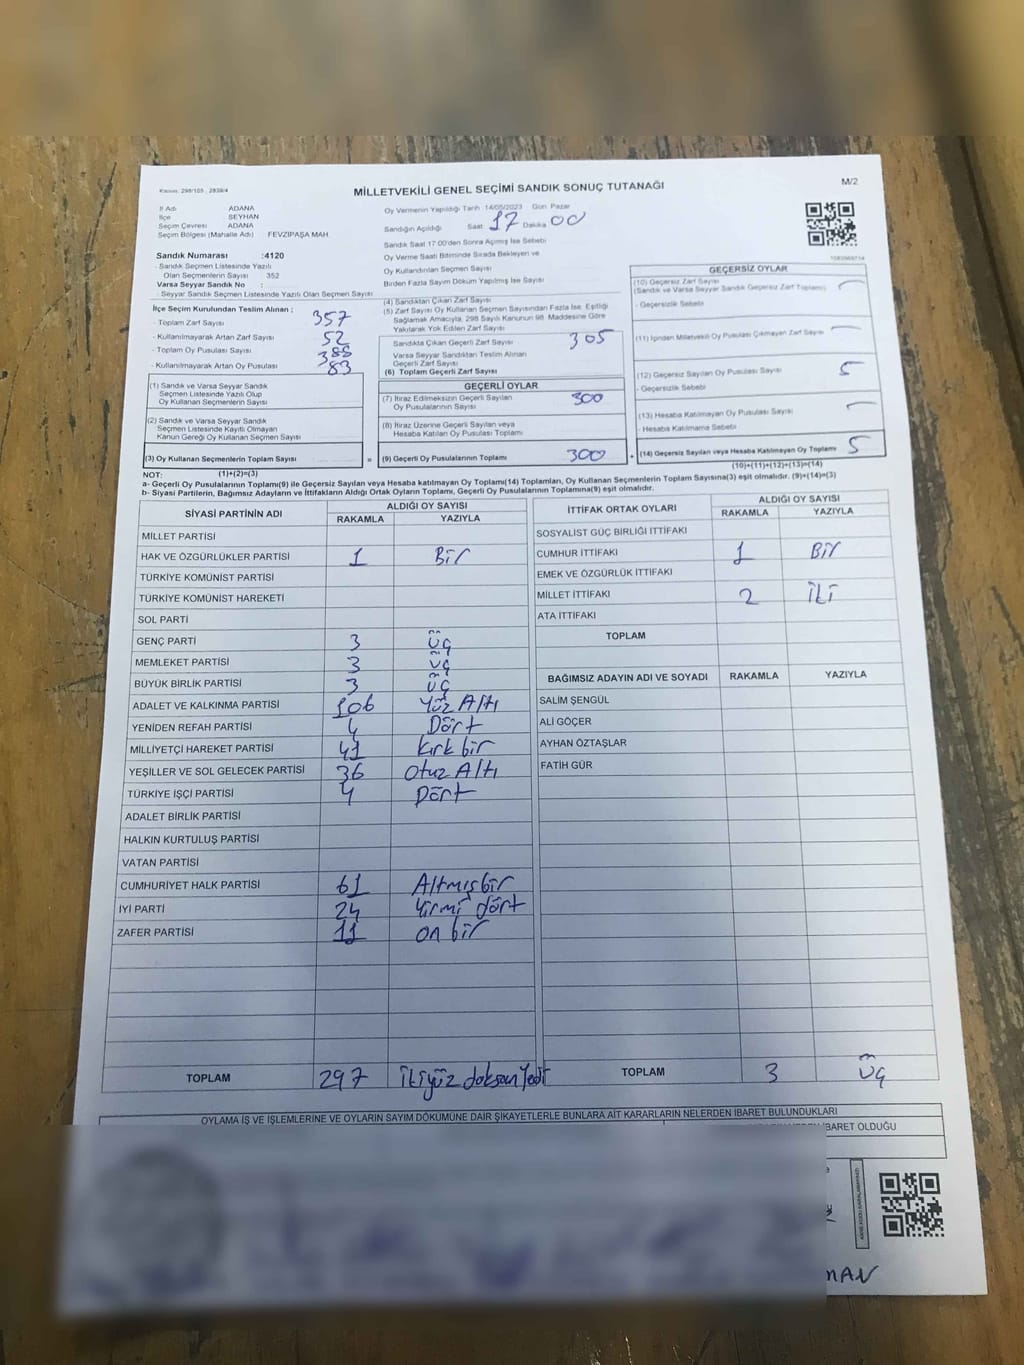 Kanun: 298/105 , 2839/4
MİLLETVEKİLİ GENEL SEÇİMİ SANDIK SONUÇ TUTANAĞI
M/2
İl Adı ADANA
İlçe SEYHAN
Seçim Çevresi ADANA
Seçim Bölgesi (Mahalle Adı) FEVZİPAŞA MAH.
Sandık Numarası :4120
- Sandık Seçmen Listesinde Yazılı
Olan Seçmenlerin Sayısı 352
Varsa Seyyar Sandık No :
- Seyyar Sandık Seçmen Listesinde Yazılı Olan Seçmen Sayısı
Oy Vermenin Yapıldığı Tarih :14/05/2023 Gün: Pazar
Sandığın Açıldığı Saat 17 Dakika 00
Sandık Saat 17.00'den Sonra Açılmış İse Sebebi
Oy Verme Saati Bitiminde Sırada Bekleyen ve
Oy Kullandırılan Seçmen Sayısı
Birden Fazla Sayım Döküm Yapılmış İse Sayısı
İlçe Seçim Kurulundan Teslim Alınan ;
- Toplam Zarf Sayısı 357
- Kullanılmayarak Artan Zarf Sayısı 52
- Toplam Oy Pusulası Sayısı 388
- Kullanılmayarak Artan Oy Pusulası 83
(1) Sandık ve Varsa Seyyar Sandık
Seçmen Listesinde Yazılı Olup
Oy Kullanan Seçmenlerin Sayısı
(2) Sandık ve Varsa Seyyar Sandık
Seçmen Listesinde Kayıtlı Olmayan
Kanun Gereği Oy Kullanan Seçmen Sayısı
(3) Oy Kullanan Seçmenlerin Toplam Sayısı
(1)+(2)=(3)
(4) Sandıktan Çıkan Zarf Sayısı
(5) Zarf Sayısı Oy Kullanan Seçmen Sayısından Fazla İse, Eşitliği
Sağlamak Amacıyla, 298 Sayılı Kanunun 98. Maddesine Göre
Yakılarak Yok Edilen Zarf Sayısı
Sandıkta Çıkan Geçerli Zarf Sayısı 305
Varsa Seyyar Sandıktan Teslim Alınan
Geçerli Zarf Sayısı
(6) Toplam Geçerli Zarf Sayısı
GEÇERLİ OYLAR
(7) İtiraz Edilmeksizin Geçerli Sayılan
Oy Pusulalarının Sayısı 300
(8) İtiraz Üzerine Geçerli Sayılan veya
Hesaba Katılan Oy Pusulası Toplamı
= (9) Geçerli Oy Pusulalarının Toplamı 300
GEÇERSİZ OYLAR
(10) Geçersiz Zarf Sayısı
(Sandık ve Varsa Seyyar Sandık Geçersiz Zarf Toplamı)
- Geçersizlik Sebebi
(11) İçinden Milletvekili Oy Pusulası Çıkmayan Zarf Sayısı
(12) Geçersiz Sayılan Oy Pusulası Sayısı 5
- Geçersizlik Sebebi
(13) Hesaba Katılmayan Oy Pusulası Sayısı
- Hesaba Katılmama Sebebi
+ (14) Geçersiz Sayılan veya Hesaba Katılmayan Oy Toplamı 5
(10)+(11)+(12)+(13)=(14)
NOT:
a- Geçerli Oy Pusulalarının Toplamı(9) ile Geçersiz Sayılan veya Hesaba katılmayan Oy Toplamı(14) Toplamları, Oy Kullanan Seçmenlerin Toplam Sayısına(3) eşit olmalıdır. (9)+(14)=(3)
b- Siyasi Partilerin, Bağımsız Adayların ve İttifakların Aldığı Ortak Oyların Toplamı, Geçerli Oy Pusulalarının Toplamına(9) eşit olmalıdır.
SİYASİ PARTİNİN ADI ALDIĞI OY SAYISI
RAKAMLA YAZIYLA
MİLLET PARTİSİ
HAK VE ÖZGÜRLÜKLER PARTİSİ 1 Bir
TÜRKİYE KOMÜNİST PARTİSİ
TÜRKİYE KOMÜNİST HAREKETİ
SOL PARTİ
GENÇ PARTİ 3 üç
MEMLEKET PARTİSİ 3 üç
BÜYÜK BİRLİK PARTİSİ 3 üç
ADALET VE KALKINMA PARTİSİ 106 Yüz Altı
YENİDEN REFAH PARTİSİ 4 Dört
MİLLİYETÇİ HAREKET PARTİSİ 41 Kırk bir
YEŞİLLER VE SOL GELECEK PARTİSİ 36 Otuz Altı
TÜRKİYE İŞÇİ PARTİSİ 4 Dört
ADALET BİRLİK PARTİSİ
HALKIN KURTULUŞ PARTİSİ
VATAN PARTİSİ
CUMHURİYET HALK PARTİSİ 61 Altmış bir
İYİ PARTİ 24 Yirmi dört
ZAFER PARTİSİ 11 on bir
TOPLAM 297 ikiyüz doksan Yedi
İTTİFAK ORTAK OYLARI ALDIĞI OY SAYISI
RAKAMLA YAZIYLA
SOSYALİST GÜÇ BİRLİĞİ İTTİFAKI
CUMHUR İTTİFAKI 1 Bir
EMEK VE ÖZGÜRLÜK İTTİFAKI
MİLLET İTTİFAKI 2 iki
ATA İTTİFAKI
TOPLAM
BAĞIMSIZ ADAYIN ADI VE SOYADI RAKAMLA YAZIYLA
SALİM ŞENGÜL
ALİ GÖÇER
AYHAN ÖZTAŞLAR
FATİH GÜR
TOPLAM 3 üç
OYLAMA İŞ VE İŞLEMLERİNE VE OYLARIN SAYIM DÖKÜMÜNE DAİR ŞİKAYETLERLE BUNLARA AİT KARARLARIN NELERDEN İBARET BULUNDUKLARI
İBARET OLDUĞU
MAN